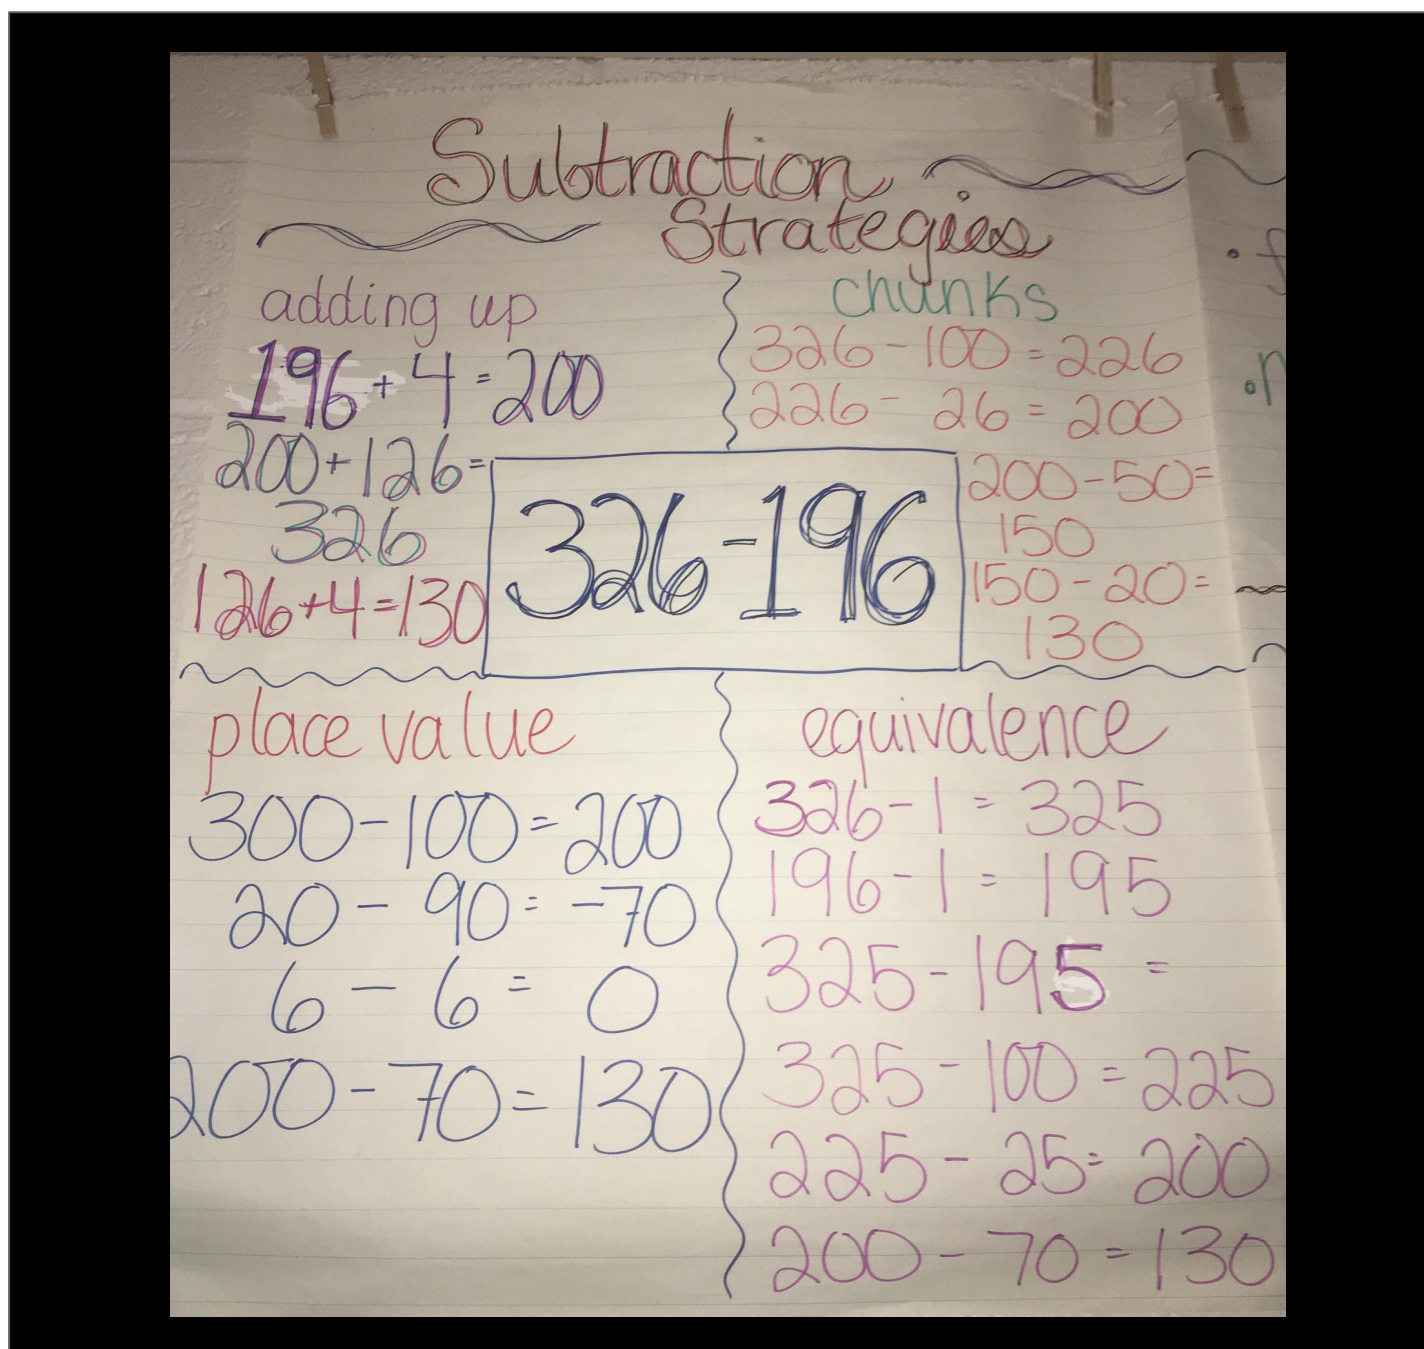 Subtraction
Strategies
adding up
196 + 4 = 200
200 + 126 =
326
126 + 4 = 130
chunks
326 - 100 = 226
226 - 26 = 200
200 - 50 =
150
150 - 20 =
130
326 - 196
place value
300 - 100 = 200
20 - 90 = -70
6 - 6 = 0
200 - 70 = 130
equivalence
326 - 1 = 325
196 - 1 = 195
325 - 195 =
325 - 100 = 225
225 - 25 = 200
200 - 70 = 130